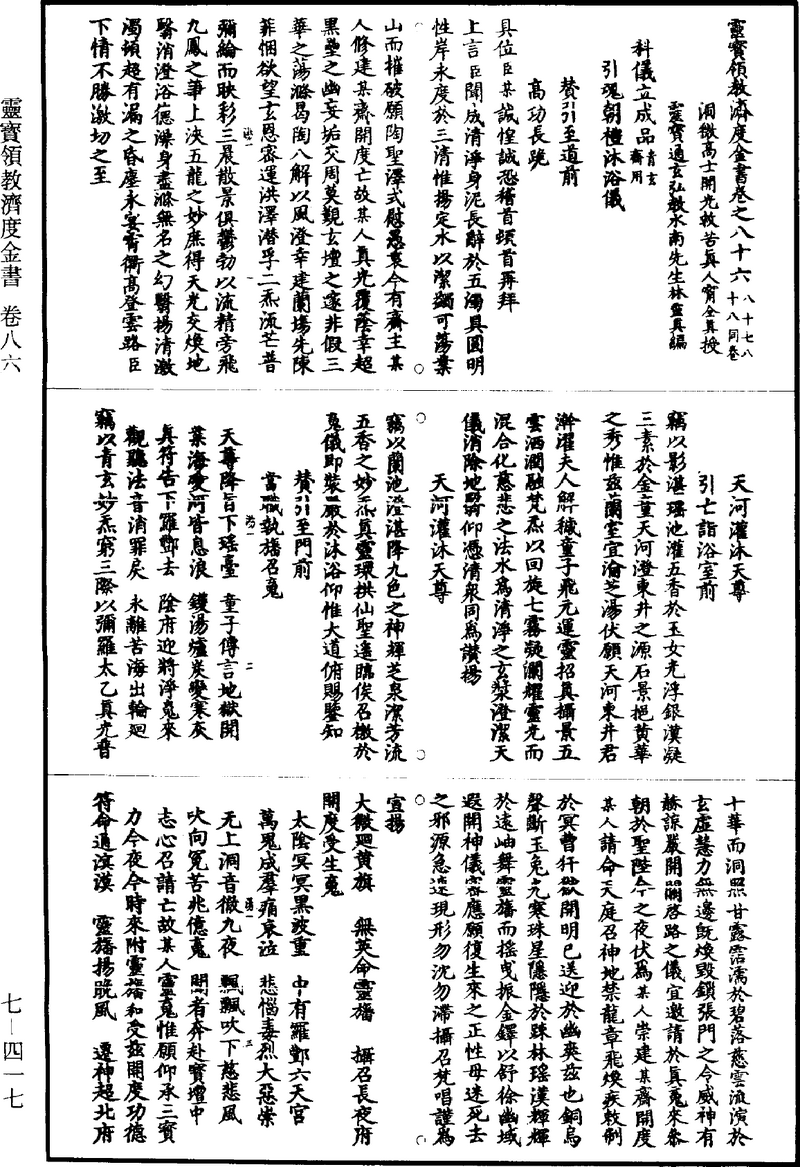 靈寶領教濟度金書卷之八十六 八十七八十八同卷
洞微高士開光救苦眞人甯全眞授
靈寶通玄弘教水南先生林靈眞編
科儀立成品 青玄齋用
引魂朝禮沐浴儀
贊引至道前
高功長跪
具位臣某誠惶誠恐稽首頓首再拜
上言臣聞成清淨身泥長辭於五濁具圓明
性岸永度於三清惟揚定水以潔蠲可蕩業
山而摧破願陶聖澤式慰哀今有齋主某
人修建某齋開度亡故某人眞光覆蔭幸超
黑壘之幽妄垢交周莫覿玄壇之邃非假三
華之蕩滌曷陶八解以風澄幸建蘭塲先陳
菲悃欲望玄恩密運洪澤潜孚二炁流芒普
彌綸而映彩三晨散景俱鬱勃以流精旁飛
九鳳之筆上泱五龍之妙庶得天光交煥地
翳消澄浴德澡身盡滌無名之幻翳揚清激
濁頓超有漏之昏塵永宴霄衢高登雲路臣
下情不勝激切之至
天河灌沐天尊
引亡詣浴室前
竊以影湛瑶池灌五香於玉女光浮銀漢凝
三素於金童天河澄東井之源石景挹黄華
之秀惟兹蘭室宜瀹芝湯伏願天河東井君
澣濯夫人解穢童子飛元運靈招眞攝景五
雲洒潤融梵炁以回旋七霧凝瀾耀靈光而
混合化慈悲之法水爲清淨之玄漿澄潔天
儀消除地翳仰憑清衆同爲讚揚
天河灌沐天尊
竊以蘭池澄湛降九色之神輝芝泉潔芳流
五香之妙炁眞靈環拱仙聖遙臨俟召檄於
䰟儀即裝嚴於沐浴仰惟大道俯賜鑒知
贊引至門前
當職執旛召䰟
天尊降旨下瑶臺 童子傳言地獄開
業海愛河皆息浪 鑊湯爐炭變寒灰
眞符告下羅酆去 陰府迎將淨䰟來
觀聽法音消罪戾 永離苦海出輪廻
竊以青玄妙炁窮三際以彌羅太乙眞光普
十華而洞照甘露霑濡於碧落慈雲流演於
玄虛慧力無邊旣煥毀鎖張門之令威神有
赫諒嚴開關啓路之儀宜邀請於眞䰟來叅
朝於聖陛今之夜伏爲某人崇建某齋開度
某人請命天庭召神地禁龍章飛煥疾敕制
於冥曹犴獄開明已送迎於幽爽兹也銅烏
聲斷玉兔光寒珠星隱隱於踈林瑶漢輝輝
於遠岫舞靈旛而摇曳振金鐸以舒徐幽域
遐開神儀密應願復生來之正性毋迷死去
之邪源急速現形勿沈勿滯攝召梵唱謹爲
宣揚
大微廻黄旗 無英命靈旛 攝召長夜府
開度受生䰟
太陰冥冥黑波重 中有羅酆六天宮
萬鬼成羣痛哀泣 悲惱毒烈大惡祟
无上洞音徹九夜 飄飄吹下慈悲風
吠向冤苦兆億䰟 聞者奔赴寳壇中
志心召請亡故某人靈䰟惟願仰承三寳
力今夜今時來附靈旛和受兹開度功德
符命通溟漠 靈旛揚晚風 遷神超北府
靈寶領教濟度金書 卷八六
七—四一七